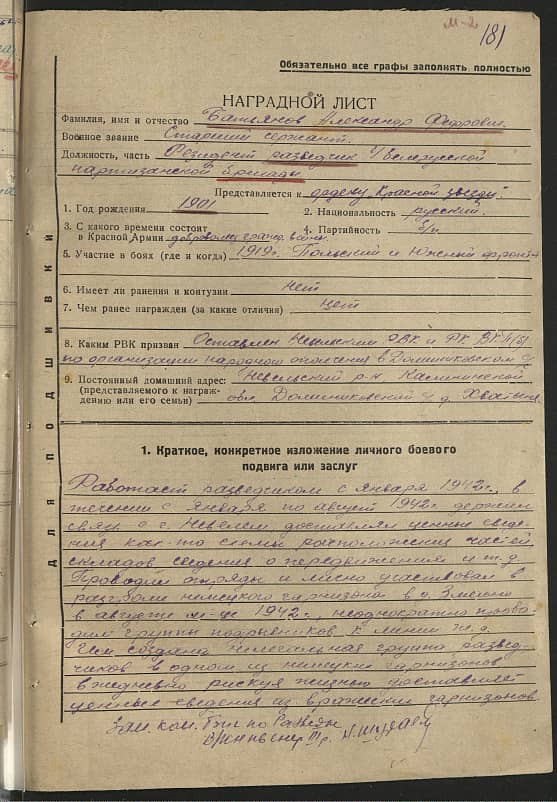 181
Обязательно все графы заполнять полностью
НАГРАДНОЙ ЛИСТ
Фамилия, имя и отчество Батьянов Александр
Военное звание Старший сержант.
Должность, часть Резидент разведчик 4 Белорусской
партизанской бригады
Представляется к ордену Красной звезды.
1. Год рождения 1901
2. Национальность русский.
3. С какого времени состоит
в Красной Армии доброволец гражд. войны.
4. Партийность б/п
5. Участие в боях (где и когда) 1919г. Польский и Южный фронт
6. Имеет ли ранения и контузии Нет
7. Чем ранее награжден (за какие отличия) Нет
8. Каким РВК призван Оставлен Невельским РВК и РК ВКП(б)
по организации народного ополчения в Доминиковском
9. Постоянный домашний адрес: Невельский р-н Калининской
(представляемого к награж-
дению или его семьи) обл. Доминиковский д.
ДЛЯ ПОДШИВКИ
1. Краткое, конкретное изложение личного боевого
подвига или заслуг
Работает разведчиком с января 1942г., в
течении с января по август 1942г. держал
связь с г. Невелем доставлял ценные сведе-
ния как-то схемы расположения частей
складов сведения о передвижениях и т.д.
Проводил отряды и лично участвовал в
разгроме немецкого гарнизона в д.
в августе м-це 1942г., неоднократно прово-
дил группы подрывников к линии ж.д.
Им создана группа развед-
чиков в одном из немецких гарнизонов
ежедневно рискуя жизнью доставляет
ценные сведения из вражеских гарнизонов.
Зам. ком. по